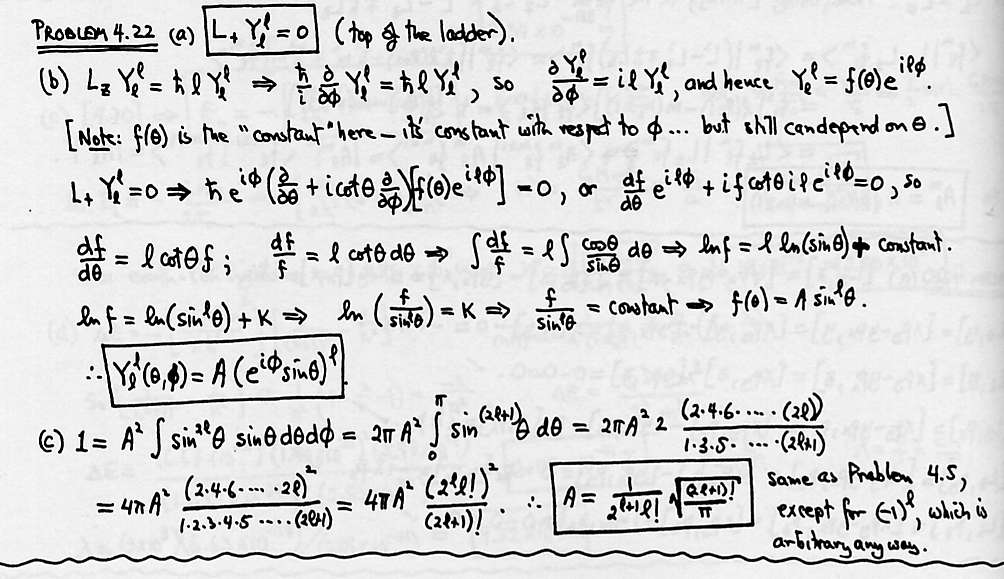 PROBLEM 4.22 (a) L₊ Y_l^l = 0 (top of the ladder).
(b) L_z Y_l^l = ħ l Y_l^l ⇒ ħ/i ∂/∂ϕ Y_l^l = ħ l Y_l^l, so ∂Y_l^l/∂ϕ = i l Y_l^l, and hence Y_l^l = f(θ)e^{ilϕ}.
[Note: f(θ) is the "constant" here — its constant with respect to ϕ ... but still can depend on θ.]
L₊ Y_l^l = 0 ⇒ ħ e^{iϕ} (∂/∂θ + i cotθ ∂/∂ϕ)[f(θ)e^{ilϕ}] = 0, or df/dθ e^{ilϕ} + i f cotθ i l e^{ilϕ} = 0, so
df/dθ = l cotθ f; df/f = l cotθ dθ ⇒ ∫ df/f = l ∫ cosθ/sinθ dθ ⇒ ln f = l ln(sinθ) + constant.
ln f = ln(sin^lθ) + K ⇒ ln (f/sin^lθ) = K ⇒ f/sin^lθ = constant ⇒ f(θ) = A sin^lθ.
∴ Y_l^l(θ,ϕ) = A (e^{iϕ} sinθ)^l.
(c) 1 = A² ∫ sin^{2l}θ sinθ dθ dϕ = 2π A² ∫_0^π sin^{(2l+1)}θ dθ = 2πA² 2 (2·4·6·····(2l))/(1·3·5·····(2l+1))
= 4πA² (2·4·6·····2l)²/(1·2·3·4·5·····(2l+1)) = 4πA² (2^l l!)²/(2l+1)!. ∴ A = 1/(2^{l+1} l!) √((2l+1)!/π) same as Problem 4.5,
except for (-1)^l, which is
arbitrary anyway.